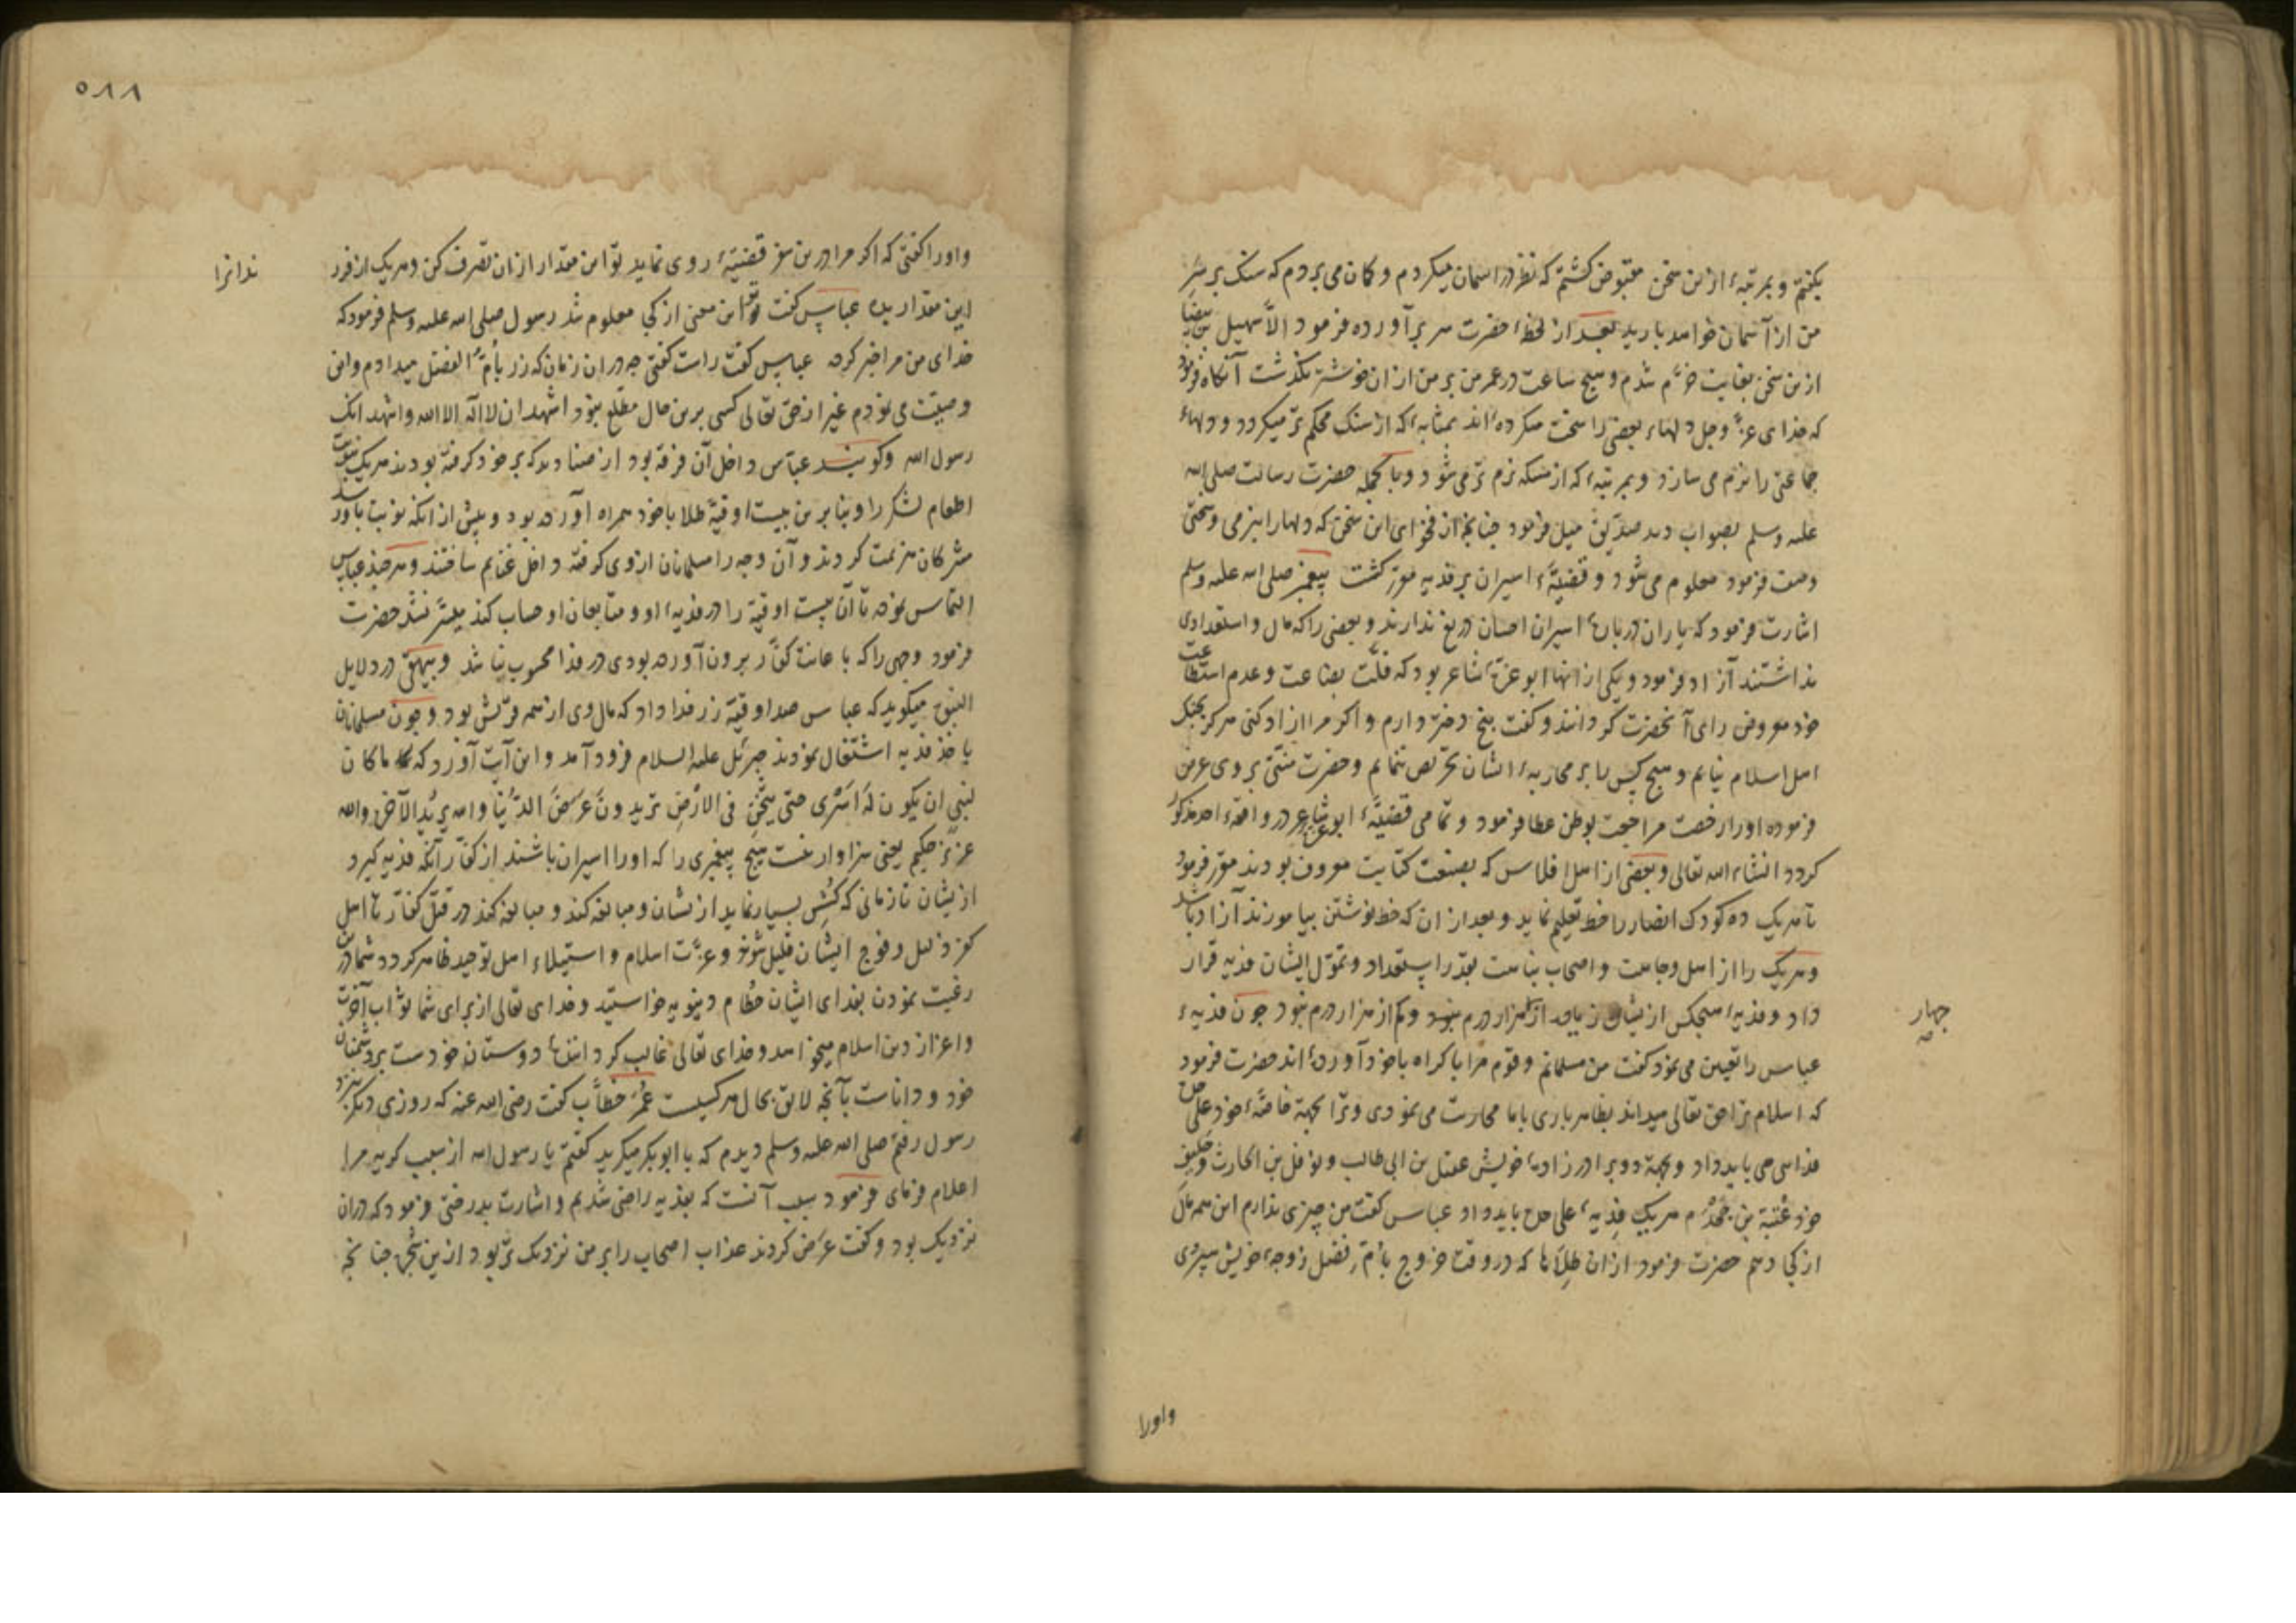 بکفتم و بمرتبهٔ ازین سخن مقبوض کشتم که نظر در اسمان میکردم و کمان می بردم که سنک بر سر
من از آسمان خواهد بارید بعد از لحظهٔ حضرت سر برآورده فرمود الا سهیل بن بیضا
ازین سخن بغایت خرم شدم و هیچ ساعت در عمر من بر من ازان خوشتر نکذشت آنکاه فرمود
که خدای عز وجل دلهاء بعضی را سخت میکرده اند بمثابهٔ که از سنک محکم تر میکردد و دلهاء
جماعتی را نرم می سازد و بمرتبهٔ که از مسکه نرم تر می شود و بالجمله حضرت رسالت صلی الله
علیه وسلم بصواب دید صدیق میل فرمود چنانچه از فحوای این سخن که دلها را بنرمی و سختی
وصف فرمود معلوم می شود و قضیهٔ اسیران بر فدیه مقرر کشت پیغمبر صلی الله علیه وسلم
اشارت فرمود که یاران دربارهٔ اسیران احسان دریغ ندارند و بعضی را که مال و استعدادی
نداشتند آزاد فرمود و یکی از انها ابو عزهٔ شاعر بود که قلت بضاعت و عدم استطاعت
خود معروض رای آنحضرت کردانید و کفت پنج دختر دارم و اکر مرا ازاد کنی هرکز بجنک
اهل اسلام نیایم و هیچ کس را بر محاربهٔ ایشان تحریص ننمایم و حضرت منتی بر وی عرض
فرموده او را رخصت مراجعت بوطن عطا فرمود و تمامی قضیهٔ ابو عزه شاعر در واقعهٔ احد مذکور
کردد انشاء الله تعالی و بعضی از اهل افلاس که بصنعت کتابت معروف بودند مقرر فرمود
تا هریک ده کودک انصار را خط تعلیم نماید و بعد از ان که خط نوشتن بیاموزند آزاد باشد
و هریک را از اهل وجاهت و اصحاب نباهت بقدر استعداد و تمول ایشان فدیه قرار
داد و فدیهٔ هیچکس ازیشان زیاده از هزار درم نبود و کم از هزار درم نبود چون فدیهٔ
چهار
عباس را تعیین می نمود کفت من مسلمانم و قوم مرا باکراه با خود آورده اند حضرت فرمود
که اسلام ترا حق تعالی میداند بظاهر باری با ما محاربت می نمودی و ترا بجهة خاصهٔ خود علی حده
فدا می باید داد و بجهة دو برادر زادهٔ خویش عقیل بن ابی طالب و نوفل بن الحارث و حلیف
خود عتبة بن جحدم هریک فدیهٔ علی حده باید داد عباس کفت من چیزی ندارم این همه مال
از کجا دهم حضرت فرمود از ان طلاها که در وقت خروج بام فضل زوجهٔ خویش سپردی
واورا
۵۸۸
واورا کفتی که اکر مرا درین سفر قضیهٔ روی نماید تو این مقدار ازان تصرف کن و هریک از فرز
ندانرا
این مقدار بده عباس کفت ترا این معنی از کجا معلوم شد رسول صلی الله علیه وسلم فرمود که
خدای من مرا خبر کرد عباس کفت راست کفتی چه دران زمان که زر بام الفضل میدادم و این
وصیت می نمودم غیر از حق تعالی کسی برین حال مطلع نبود اشهد ان لا اله الا الله واشهد انک
رسول الله و کویند عباس داخل آن فرقه بود از صنادید که بر خود کرفته بودند هریک بنوبت
اطعام لشکر را و بنابرین بیست اوقیهٔ طلا با خود همراه آورده بود و پیش از انکه نوبت باو رسد
مشرکان هزیمت کردند و آن وجه را مسلمانان از وی کرفته داخل غنایم ساختند و هرچند عباس
التماس نمود تا آن بیست اوقیه را در فدیهٔ او و متابعان او حساب کنند میسر نشد حضرت
فرمود وجهی را که باعانت کفار برون آورده بودی در فدا محسوب نباشد و بیهقی در دلایل
النبوة میکوید که عباس صد اوقیه زر فدا داد که مال وی از همه قریش بود و چون مسلمانان
باخذ فدیه اشتغال نمودند جبرئیل علیه السلام فرود آمد و این آیت آورد که ما کان
لنبی ان یکون له اسری حتی یثخن فی الارض تریدون عرض الدنیا والله یرید الآخرة والله
عزیز حکیم یعنی سزاوار نیست هیچ پیغمبری را که او را اسیران باشند از کفار آنکه فدیه کیرد
ازیشان تا زمانی که کشش بسیار نماید ازیشان و مبالغه کند و مبالغه کند در قتل کفار تا اهل
کفر ذلیل و فوج ایشان قلیل شوند و عزت اسلام و استیلاء اهل توحید ظاهر کردد شما درین
رغبت نمودن بفدای ایشان حطام دنیویه خواستید و خدای تعالی از برای شما ثواب آخرت
و اعزاز دین اسلام میخواهد و خدای تعالی غالب کردانندهٔ دوستان خودست بر دشمنان
خود و داناست بآنچه لایق بحال هرکسیست عمر خطاب کفت رضی الله عنه که روزی دیکر نزد
رسول رفتم صلی الله علیه وسلم دیدم که با ابوبکر میکرید کفتم یا رسول الله از سبب کریه مرا
اعلام فرمای فرمود سبب آنست که بفدیه راضی شدیم و اشارت بدرختی فرمود که دران
نزدیک بود و کفت عرض کردند عذاب اصحاب را بر من نزدیک تر بود ازین شجره چنانچه